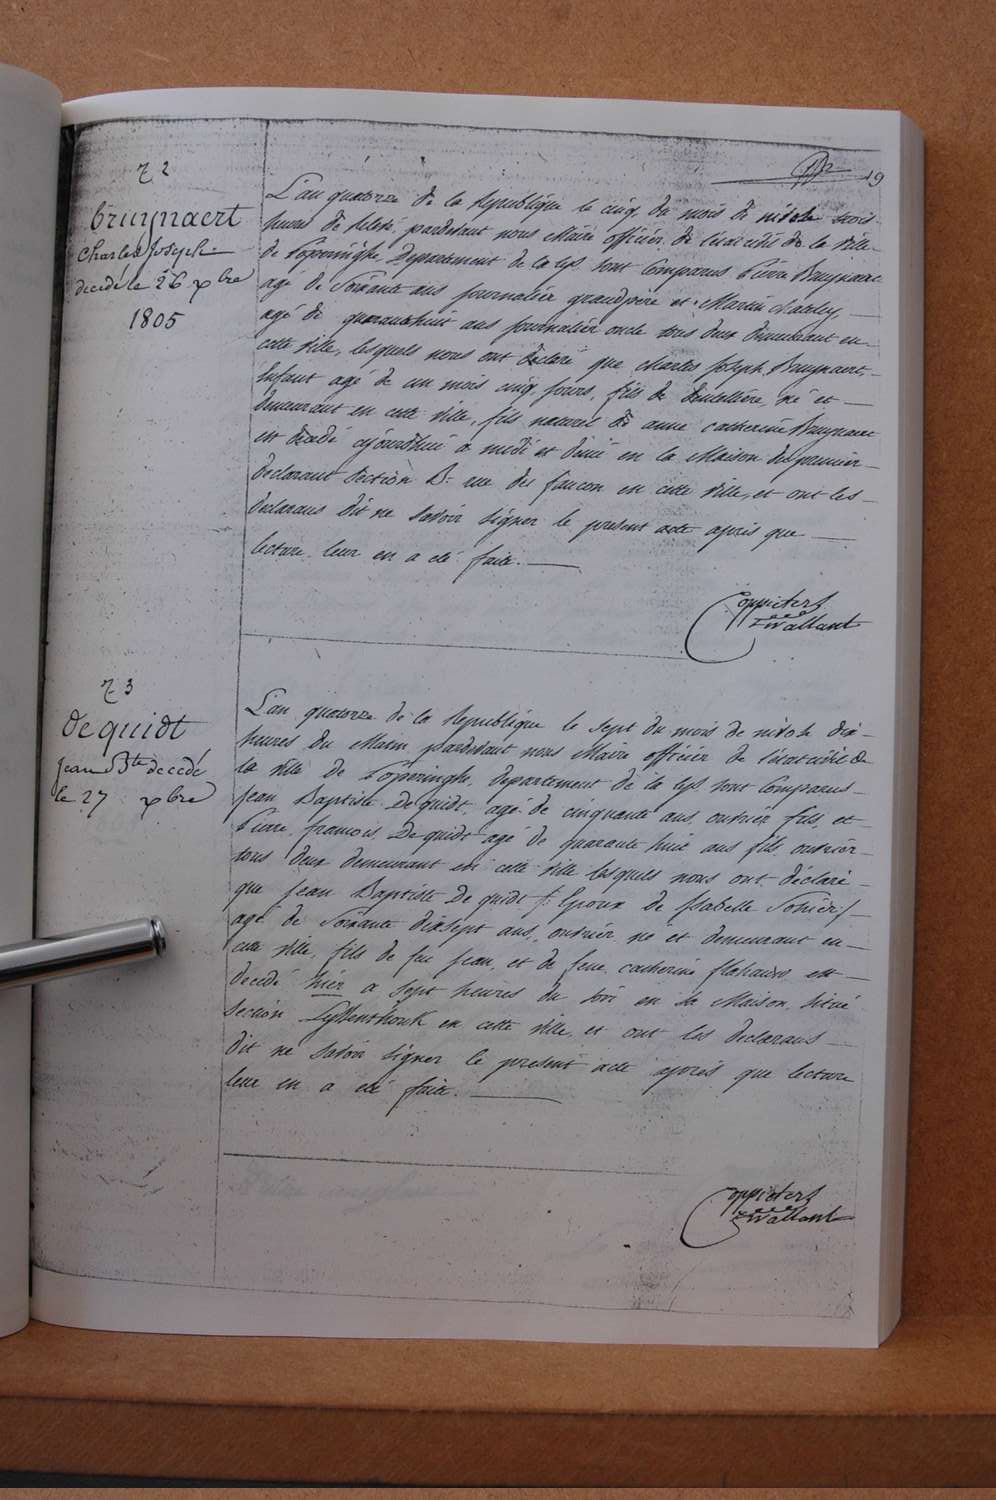 19
N 2
bruynaert
Charles Joseph
decedé le 26 xbre
1805
L'an quatorze de la Republique le cinq du mois de nivose trois
heures de relevé, pardevant nous Maire officier de l'etat civil de la ville
de Poperinghe Departement de la Lys, sont Comparus Pierre Bruynaert
agé de Soixante ans journalier grandpere et Martin
agé de quarantehuit ans journalier oncle tous deux demeurant en
cette ville, lesquels nous ont declaré que Charles Joseph Bruynaert,
Enfant agé de un mois cinq jours, fils de, né et
demeurant en cette ville, fils naturel de anne catherine Bruynaert
est decedé ajourdhui a midi et demie en la Maison du premier
declarant Section B. rue du faucon en cette ville, et ont les
declarans dit ne savoir signer le present acte après que
lecture leur en a eté faite.
Coppieters
Wallant
N 3
De quidt
Jean Bte decedé
le 27 xbre
L'an quatorze de la Republique le sept du mois de nivose dix
heures du Matin, pardevant nous Maire officier de l'etat civil de
la ville de Poperinghe, departement de la Lys, sont Comparus
Jean Baptiste De quidt, agé de cinquante ans, ouvrier fils, et
Pierre francois De quidt agé de quarante huit ans fils ouvrier
tous deux demeurant en cette ville lesquels nous ont declaré
que Jean Baptiste De quidt /: Epoux de Isabelle :/
agé de Soixante dixsept ans, ouvrier, né et demeurant en
cette ville, fils de feu Jean, et de feue catherine, est
decedé hier a sept heures du soir en sa Maison, situé
Section en cette ville et ont les declarans
dit ne savoir signer le present acte après que lecture
leur en a eté faite.
Coppieters
Wallant